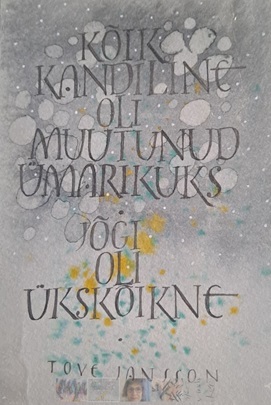 KÕIK
KANDILINE
OLI
MUUTUNUD
ÜMARIKUKS
.
JÕGI
OLI
ÜKSKÕIKNE
.
TOVE JANSSON